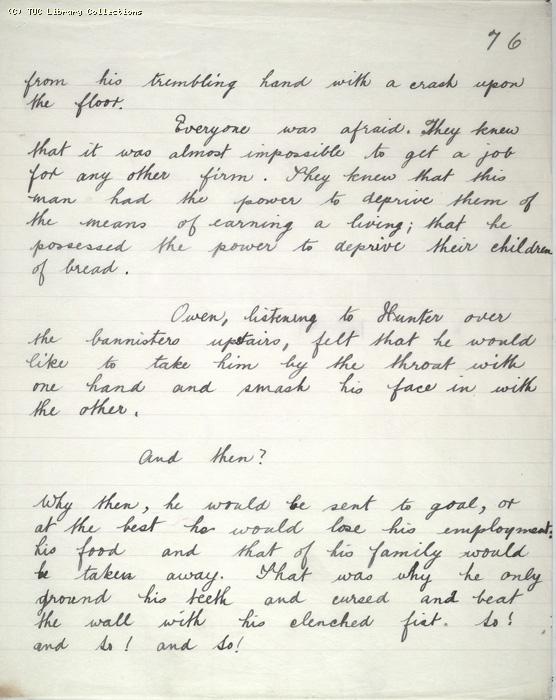 (C) TUC Library Collections
76
from his trembling hand with a crash upon
the floor.
Everyone was afraid. They knew
that it was almost impossible to get a job
for any other firm. They knew that this
man had the power to deprive them of
the means of earning a living; that he
possessed the power to deprive their children
of bread.
Owen, listening to Hunter over
the bannisters upstairs, felt that he would
like to take him by the throat with
one hand and smash his face in with
the other.
And then?
Why then, he would be sent to goal, or
at the best he would lose his employment:
his food and that of his family would
be taken away. That was why he only
ground his teeth and cursed and beat
the wall with his clenched fist. So!
and so! and so!